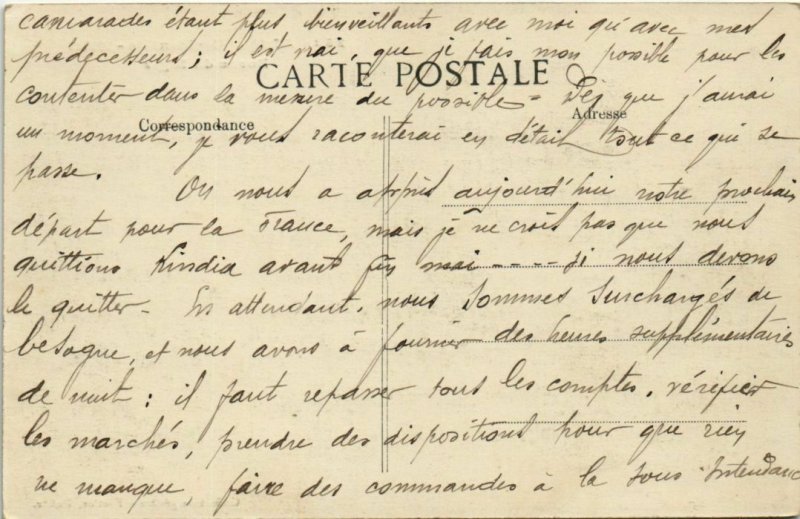 camarades étant plus bienveillants avec moi qu'avec mes
prédécesseurs ; il est vrai, que je fais mon possible pour les
CARTE POSTALE
contenter dans la mesure du possible - Dès que j'aurai
Correspondance
Adresse
un moment, je vous raconterai en détail tout ce qui se
passe.
On nous a appris aujourd'hui notre prochain
départ pour la France, mais je ne crois pas que nous
quittions Kindia avant fin mai ---- si nous devons
le quitter - En attendant, nous sommes surchargés de
besogne, et nous avons à fournir des heures supplémentaires
de nuit : il faut repasser tous les comptes, vérifier
les marchés, prendre des dispositions pour que rien
ne manque, faire des commandes à la Sous-Intendanc